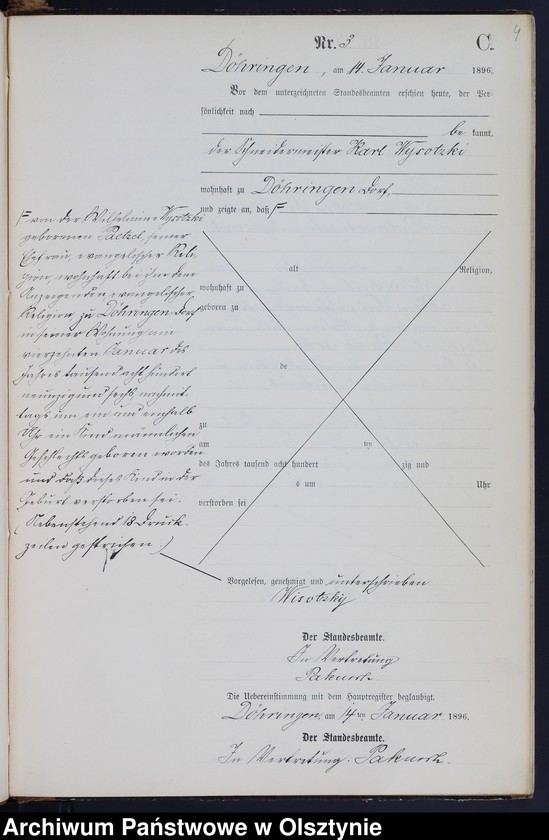 4
Nr. 3
C.
Döhringen, am 14. Januar 1896.
Vor dem unterzeichneten Standesbeamten erschien heute, der Per-
sönlichkeit nach
be kannt,
der Schneidermeister Karl Wysotzki
wohnhaft zu Döhringen Dorf,
und zeigte an, daß
von der Wilhelmine Wysotzki
geborenen Paetzel, seiner
Ehefrau, evangelischer Reli-
gion, wohnhaft bei ihm dem
Anzeigenden, evangelischer
Religion, zu Döhringen Dorf
in seiner Wohnung am
vierzehnten Januar des
Jahres tausend acht hundert
neunzig und sechs, nachmit-
tags um ein und einhalb
Uhr ein Kind männlichen
Geschlechts geboren worden
und daß dieses Kind in der
Geburt verstorben sei.
(Nebenstehend 13 Druck-
zeilen gestrichen.)
alt Religion,
wohnhaft zu
geboren zu
de
zu
am ten
des Jahres tausend acht hundert zig und
s um Uhr
verstorben sei
Vorgelesen, genehmigt und unterschrieben
Wisotzky
Der Standesbeamte.
In Vertretung
Die Uebereinstimmung mit dem Hauptregister beglaubigt.
Döhringen, am 14ten Januar 1896.
Der Standesbeamte.
In Vertretung.
Archiwum Państwowe w Olsztynie